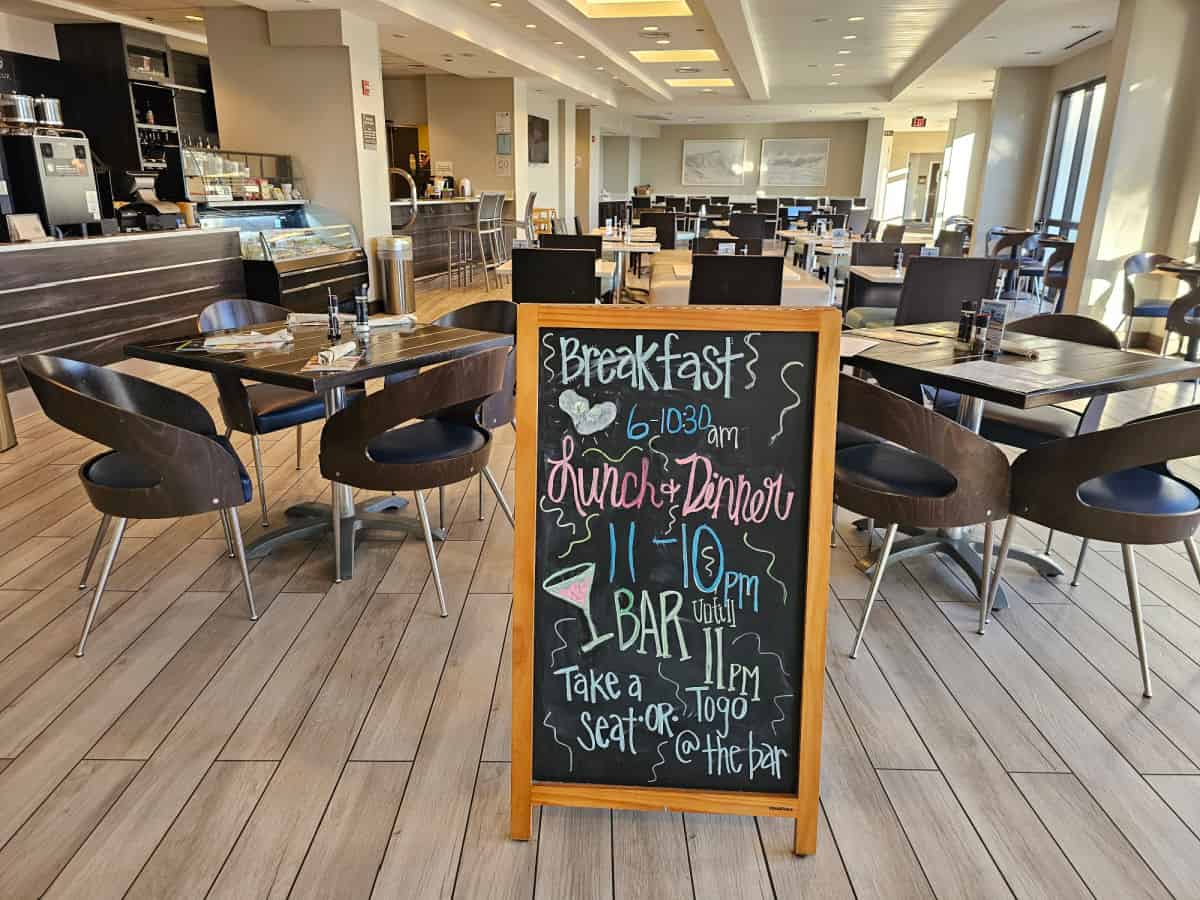 Breakfast
6-10:30 am
Lunch & Dinner
11-10pm
BAR until
11PM
Take a
seat·OR· Togo
@the bar